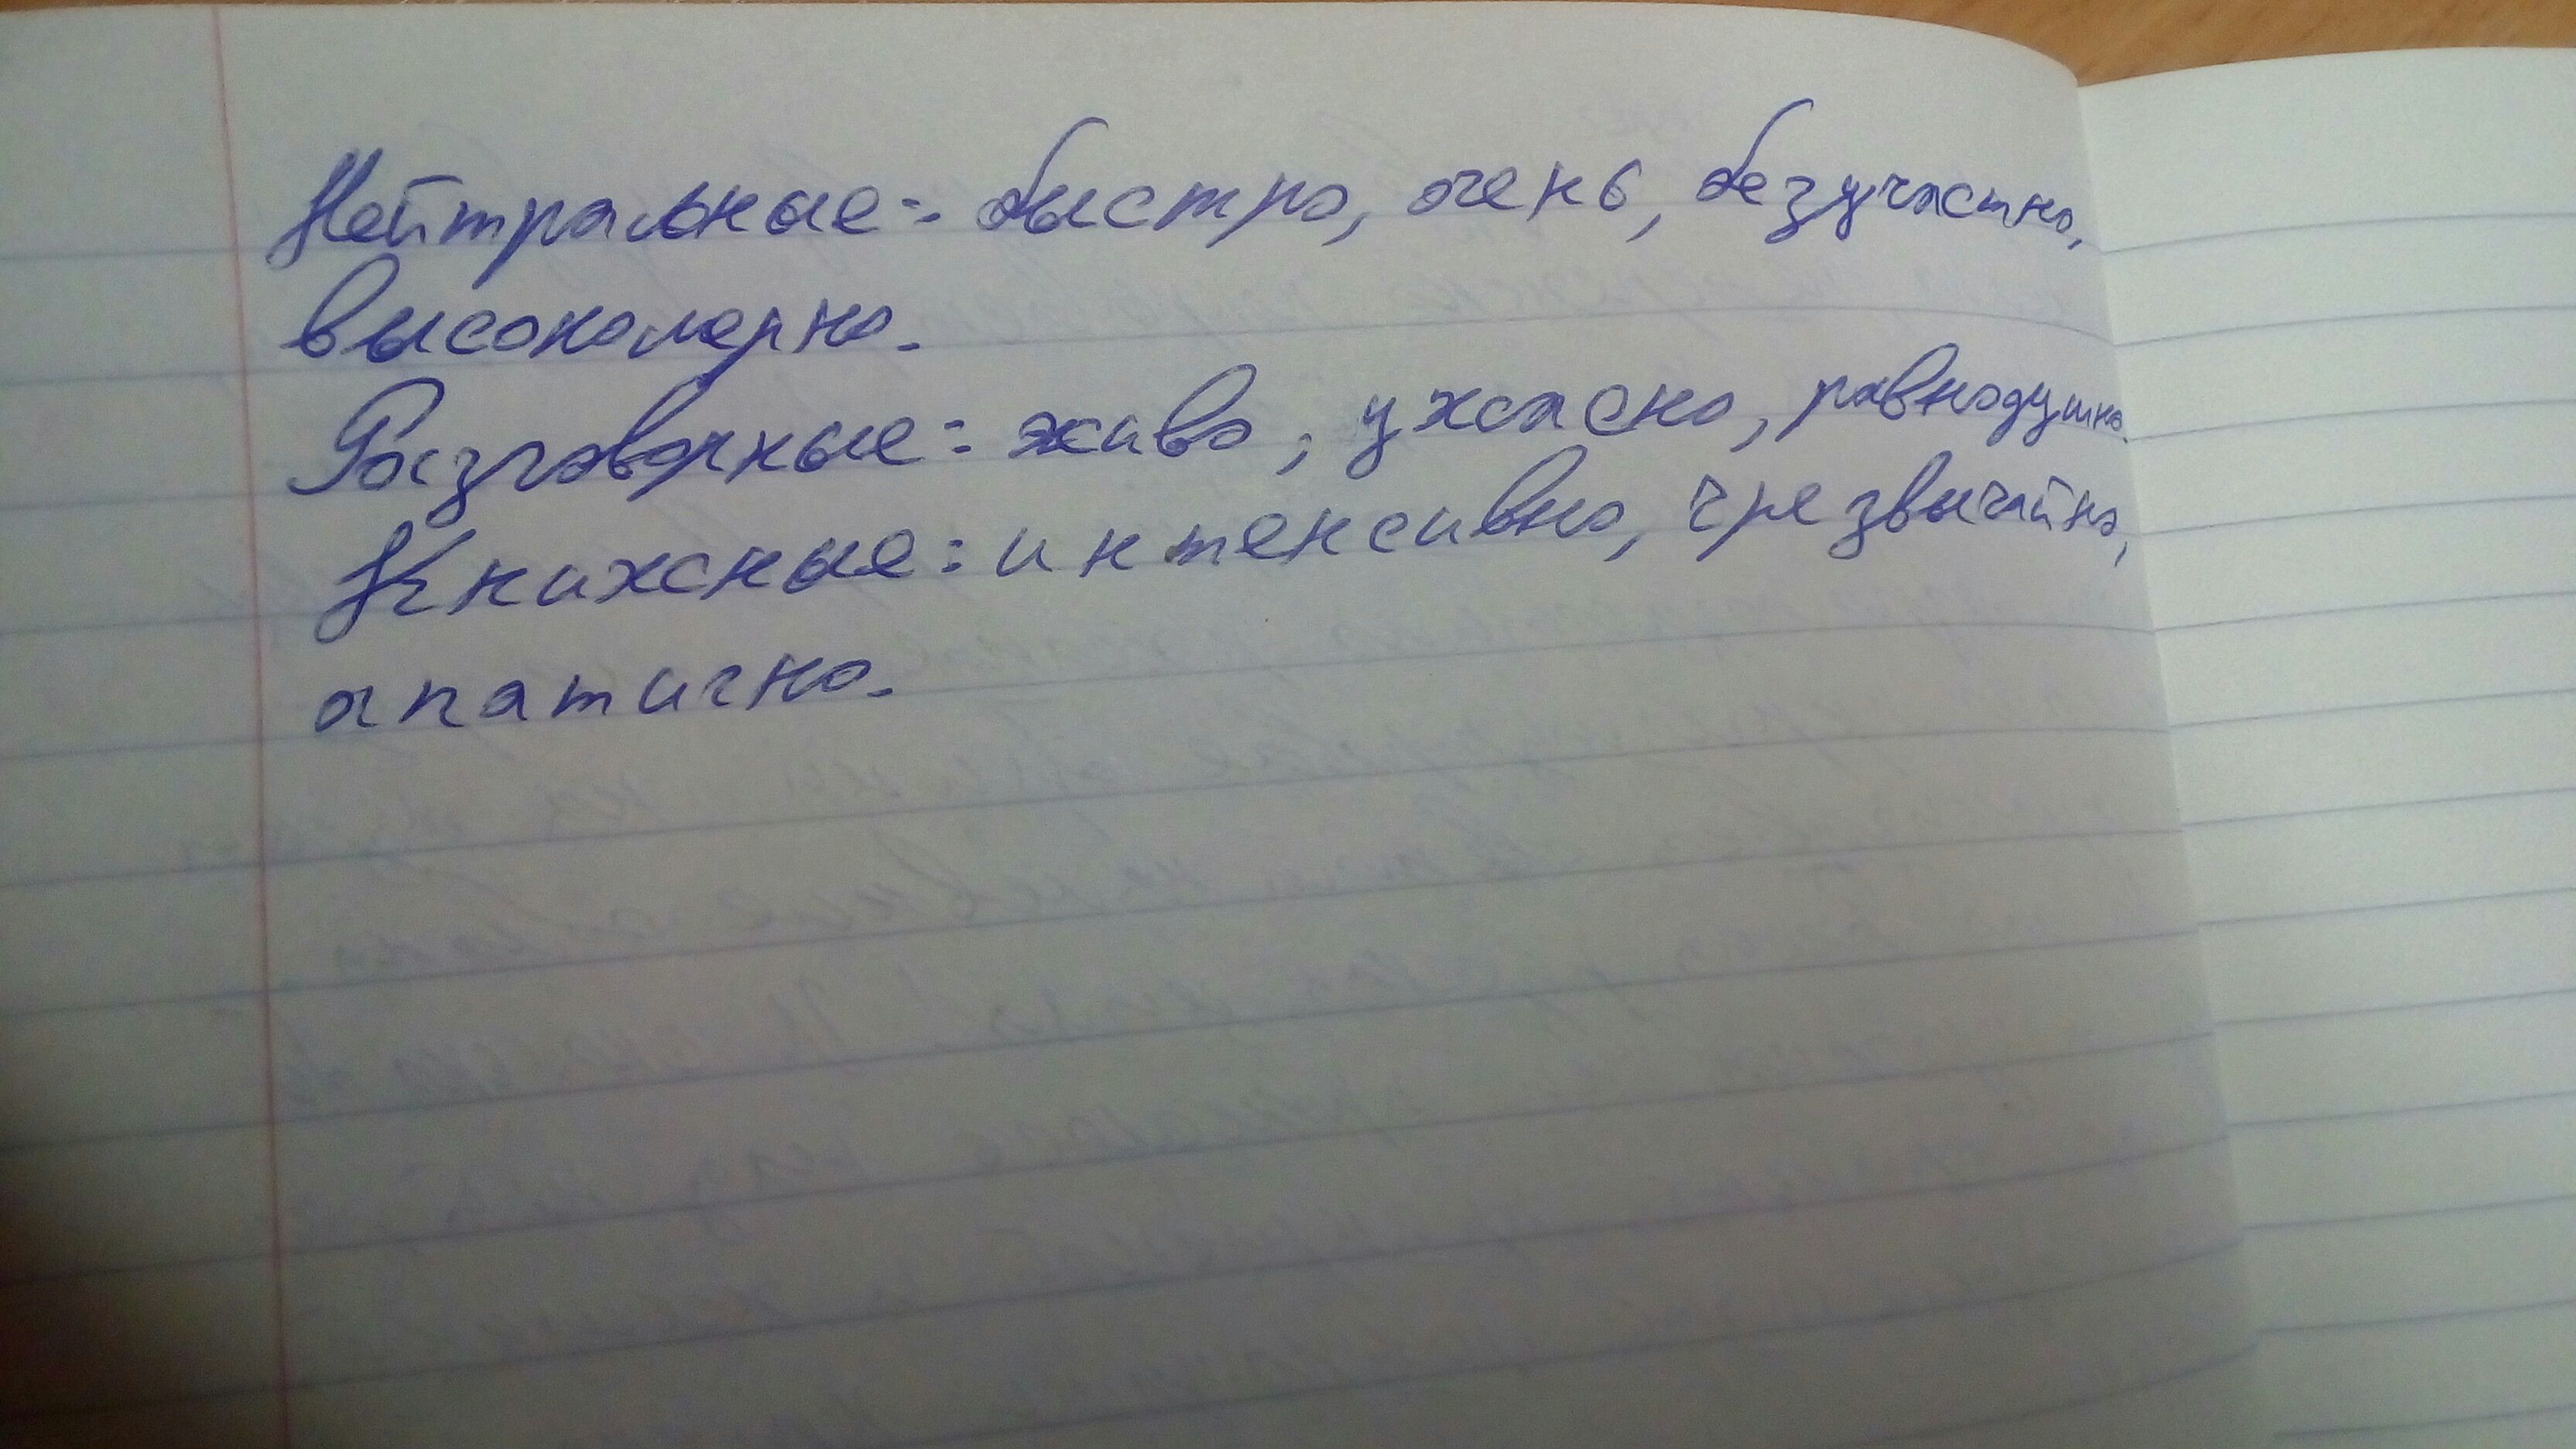 Нейтральные: быстро, очень, безучастно,
высокомерно.
Разговорные: живо, ужасно, равнодушно.
Книжные: интенсивно, чрезвычайно,
апатично.